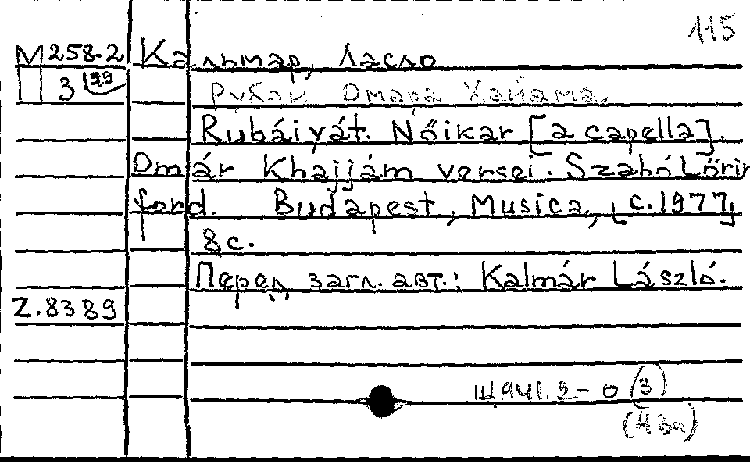 115
М 258-2 Кальмар, Ласло
3
Рубаи Омара Хайама.
Rubáiyát. Nőikar [a capella].
Omár Khajjám versei. Szabó Lőrin
ford. Budapest, Musica, [c.1977]
8 c.
Перед загл. авт.: Kalmár László.
Z.8389
Щ941.5-0 (3)